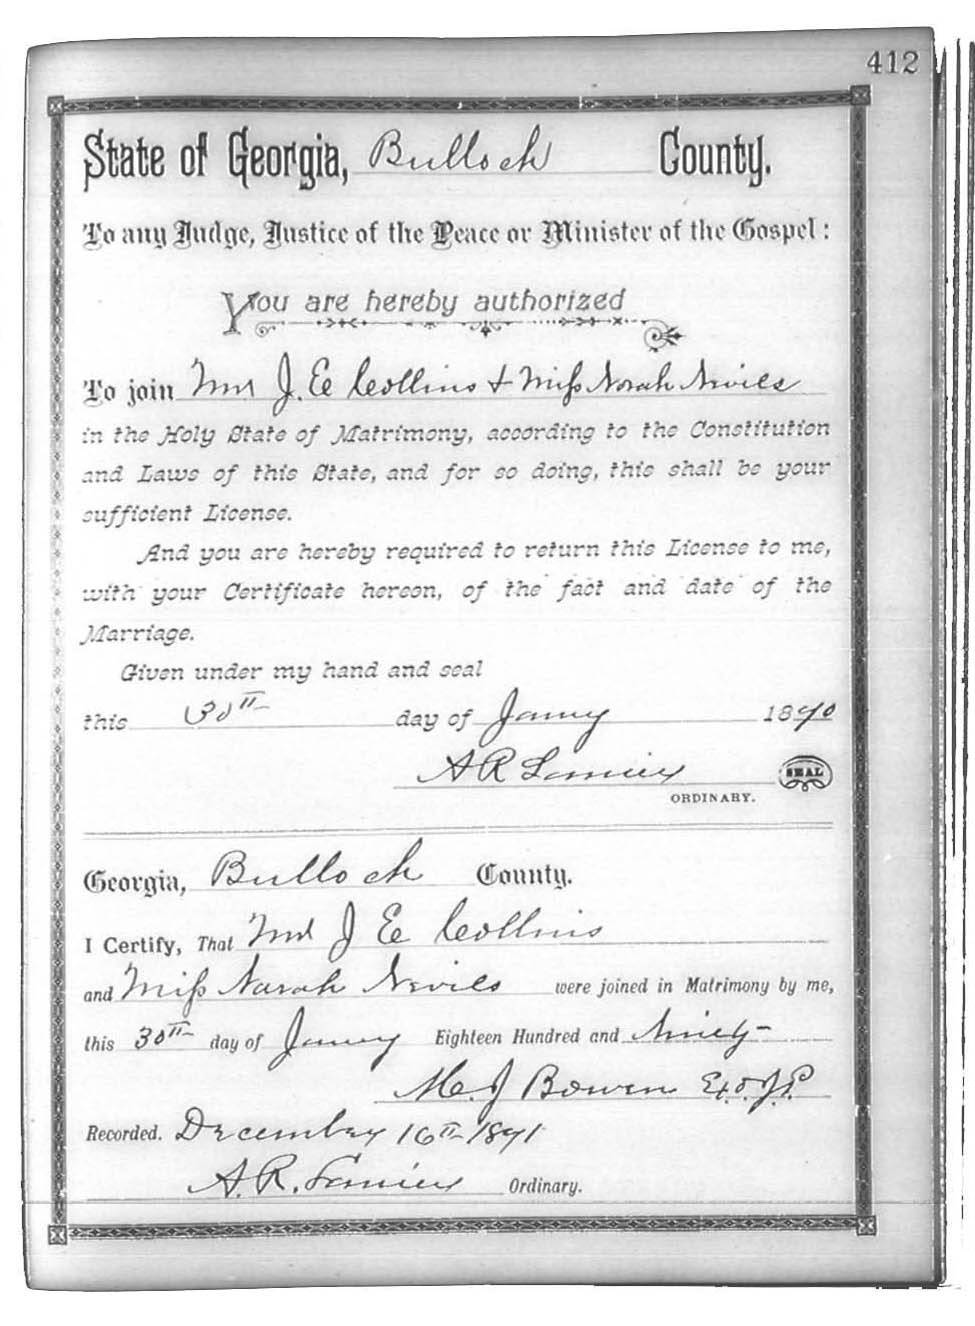 412
State of Georgia, Bulloch County.
To any Judge, Justice of the Peace or Minister of the Gospel:
You are hereby authorized
To join Mr J. E Collins & Miss Norah Nevils
in the Holy State of Matrimony, according to the Constitution
and Laws of this State, and for so doing, this shall be your
sufficient License.
And you are hereby required to return this License to me,
with your Certificate hereon, of the fact and date of the
Marriage.
Given under my hand and seal
this 30th day of Jany 1890
A R Lanier SEAL
ORDINARY.
Georgia, Bulloch County.
I Certify, That Mr J E Collins
and Miss Narah Nevils were joined in Matrimony by me,
this 30th day of Jany Eighteen Hundred and Ninety
M. J Bowen Ex. O. J. P.
Recorded. December 16th 1891
A. R. Lanier Ordinary.